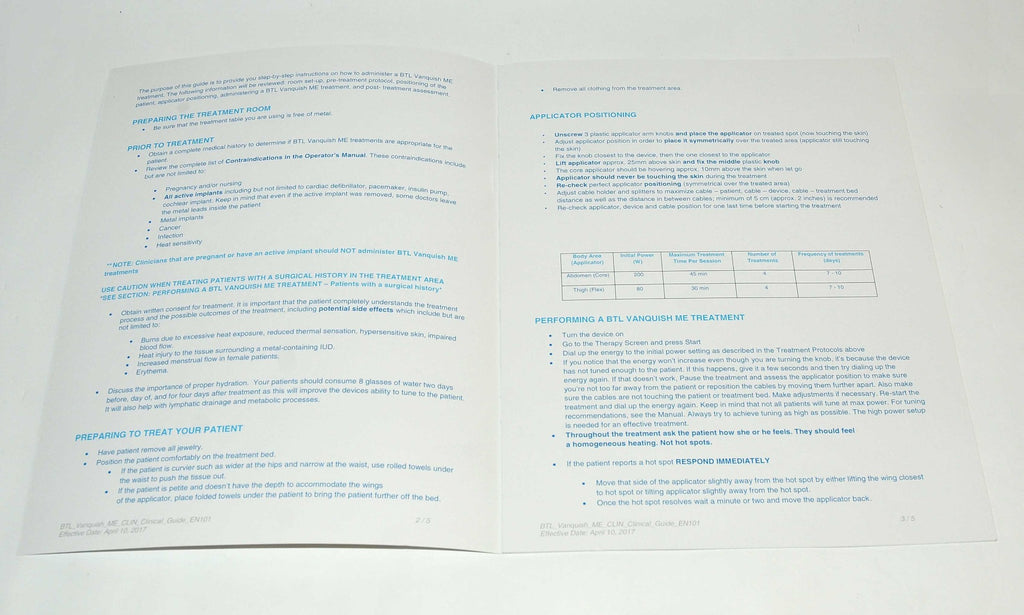 The purpose of this guide is to provide you step-by-step instructions on how to administer a BTL Vanquish ME
treatment. The following information will be reviewed: room set-up, pre-treatment protocol, positioning of the
patient, applicator positioning, administering a BTL Vanquish ME treatment, and post- treatment assessment.
PREPARING THE TREATMENT ROOM
• Be sure that the treatment table you are using is free of metal.
PRIOR TO TREATMENT
• Obtain a complete medical history to determine if BTL Vanquish ME treatments are appropriate for the
patient.
• Review the complete list of Contraindications in the Operator's Manual. These contraindications include
but are not limited to:
• Pregnancy and/or nursing
• All active implants including but not limited to cardiac defibrillator, pacemaker, insulin pump,
cochlear implant. Keep in mind that even if the active implant was removed, some doctors leave
the metal leads inside the patient
• Metal implants
• Cancer
• Infection
• Heat sensitivity
**NOTE: Clinicians that are pregnant or have an active implant should NOT administer BTL Vanquish ME
treatments
USE CAUTION WHEN TREATING PATIENTS WITH A SURGICAL HISTORY IN THE TREATMENT AREA
*SEE SECTION: PERFORMING A BTL VANQUISH ME TREATMENT – Patients with a surgical history*
• Obtain written consent for treatment. It is important that the patient completely understands the treatment
process and the possible outcomes of the treatment, including potential side effects which include but are
not limited to:
• Burns due to excessive heat exposure, reduced thermal sensation, hypersensitive skin, impaired
blood flow.
• Heat injury to the tissue surrounding a metal-containing IUD.
• Increased menstrual flow in female patients.
• Erythema.
• Discuss the importance of proper hydration. Your patients should consume 8 glasses of water two days
before, day of, and for four days after treatment as this will improve the devices ability to tune to the patient.
It will also help with lymphatic drainage and metabolic processes.
PREPARING TO TREAT YOUR PATIENT
• Have patient remove all jewelry.
• Position the patient comfortably on the treatment bed.
• If the patient is curvier such as wider at the hips and narrow at the waist, use rolled towels under
the waist to push the tissue out.
• If the patient is petite and doesn't have the depth to accommodate the wings
of the applicator, place folded towels under the patient to bring the patient further off the bed.
BTL_Vanquish_ME_CLIN_Clinical_Guide_EN101
Effective Date: April 10, 2017
2 / 5
• Remove all clothing from the treatment area.
APPLICATOR POSITIONING
• Unscrew 3 plastic applicator arm knobs and place the applicator on treated spot (now touching the skin)
• Adjust applicator position in order to place it symmetrically over the treated area (applicator still touching
the skin)
• Fix the knob closest to the device, then the one closest to the applicator
• Lift applicator approx. 25mm above skin and fix the middle plastic knob
• The core applicator should be hovering approx. 10mm above the skin when let go
• Applicator should never be touching the skin during the treatment
• Re-check perfect applicator positioning (symmetrical over the treated area)
• Adjust cable holder and splitters to maximize cable – patient, cable – device, cable – treatment bed
distance as well as the distance in between cables; minimum of 5 cm (approx. 2 inches) is recommended
• Re-check applicator, device and cable position for one last time before starting the treatment
Body Area (Applicator) Initial Power (W) Maximum Treatment Time Per Session Number of Treatments Frequency of treatments (days)
Abdomen (Core) 200 45 min 4 7 - 10
Thigh (Flex) 80 30 min 4 7 - 10
PERFORMING A BTL VANQUISH ME TREATMENT
• Turn the device on
• Go to the Therapy Screen and press Start
• Dial up the energy to the initial power setting as described in the Treatment Protocols above
• If you notice that the energy won't increase even though you are turning the knob, it's because the device
has not tuned enough to the patient. If this happens, give it a few seconds and then try dialing up the
energy again. If that doesn't work, Pause the treatment and assess the applicator position to make sure
you're not too far away from the patient or reposition the cables by moving them further apart. Also make
sure the cables are not touching the patient or treatment bed. Make adjustments if necessary. Re-start the
treatment and dial up the energy again. Keep in mind that not all patients will tune at max power. For tuning
recommendations, see the Manual. Always try to achieve tuning as high as possible. The high power setup
is needed for an effective treatment.
• Throughout the treatment ask the patient how she or he feels. They should feel
a homogeneous heating. Not hot spots.
• If the patient reports a hot spot RESPOND IMMEDIATELY
• Move that side of the applicator slightly away from the hot spot by either lifting the wing closest
to hot spot or tilting applicator slightly away from the hot spot.
• Once the hot spot resolves wait a minute or two and move the applicator back.
BTL_Vanquish_ME_CLIN_Clinical_Guide_EN101
Effective Date: April 10, 2017
3 / 5